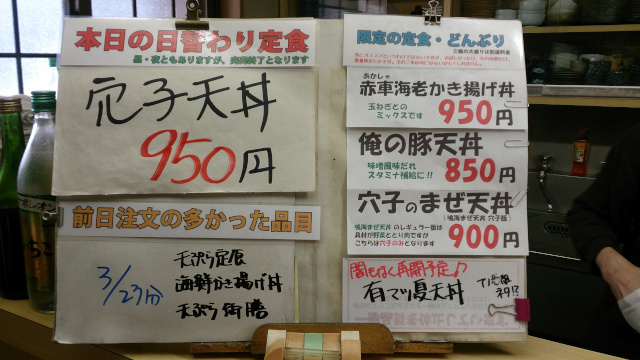 本日の日替わり定食
昼・夜ともありますが、完売終了となります
穴子天丼
950円
前日注文の多かった品目
3/23分
天ぷら定食
海鮮かき揚げ丼
天ぷら御膳
限定の定食・どんぶり
ご飯の大盛りは別途料金
あかしゃ
赤車海老かき揚げ丼
玉ねぎとの
ミックスです
950円
俺の豚天丼
味噌風味だれ
スタミナ補給に!!
850円
穴子のまぜ天丼
(鳴海まぜ天丼 穴子版)
鳴海まぜ天丼のレギュラー版は
具材が野菜ととり肉ですが
こちらは穴子のみとなります
900円
間もなく再開予定♪
有マツ夏天丼